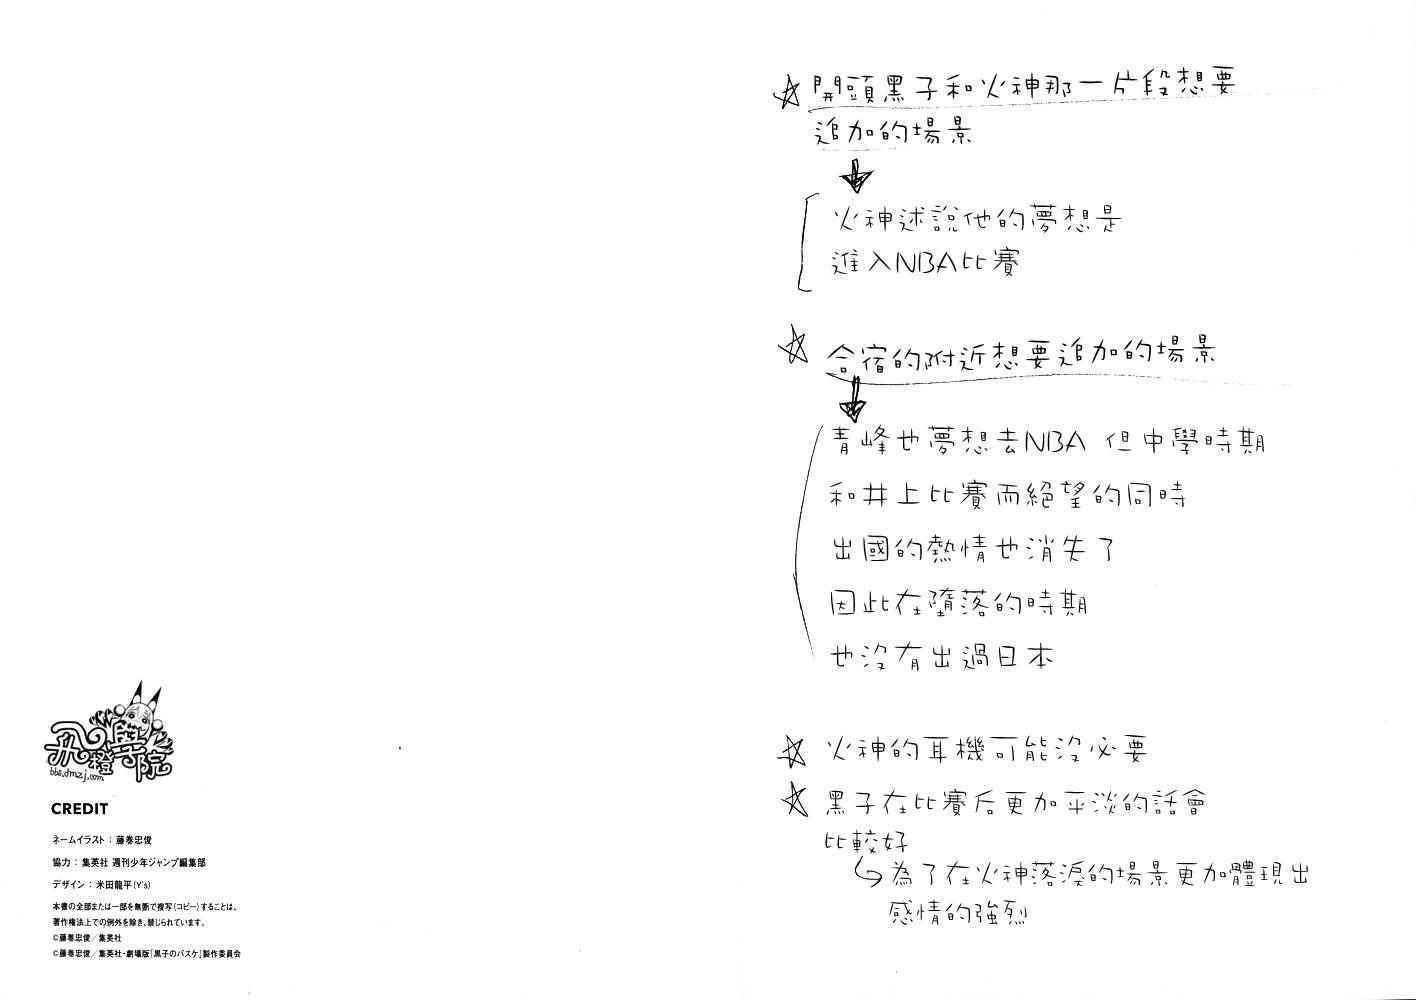 ☆開頭黑子和火神那一片段想要
追加的場景
火神述說他的夢想是
進入NBA比賽
☆合宿的附近想要追加的場景
青峰也夢想去NBA 但中學時期
和井上比賽而絕望的同時
出國的熱情也消失了
因此在墮落的時期
也沒有出過日本
☆火神的耳機可能沒必要
☆黑子在比賽后更加平淡的話會
比較好
為了在火神落淚的場景更加體現出
感情的強烈
bbs.dmzj.com
CREDIT
ネームイラスト：藤巻忠俊
協力：集英社 週刊少年ジャンプ編集部
デザイン：米田龍平(Y's)
本書の全部または一部を無断で複写(コピー)することは、
著作権法上での例外を除き、禁じられています。
©藤巻忠俊／集英社
©藤巻忠俊／集英社・劇場版「黒子のバスケ」製作委員会